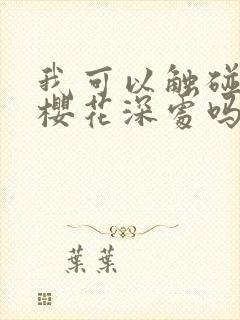 我可以触碰
樱花深处吗
葉葉